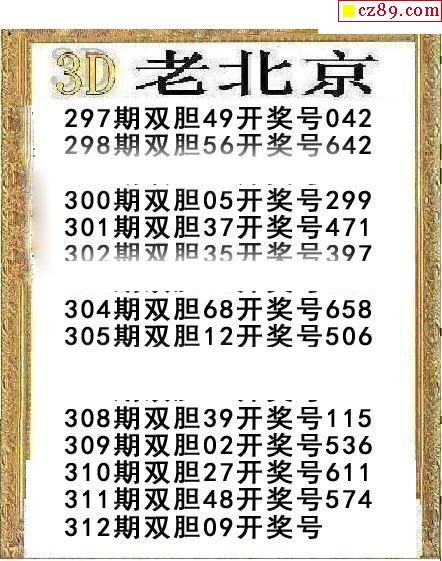 cz89.com
3D 老北京
297期双胆49开奖号042
298期双胆56开奖号642
300期双胆05开奖号299
301期双胆37开奖号471
302期双胆35开奖号397
304期双胆68开奖号658
305期双胆12开奖号506
308期双胆39开奖号115
309期双胆02开奖号536
310期双胆27开奖号611
311期双胆48开奖号574
312期双胆09开奖号